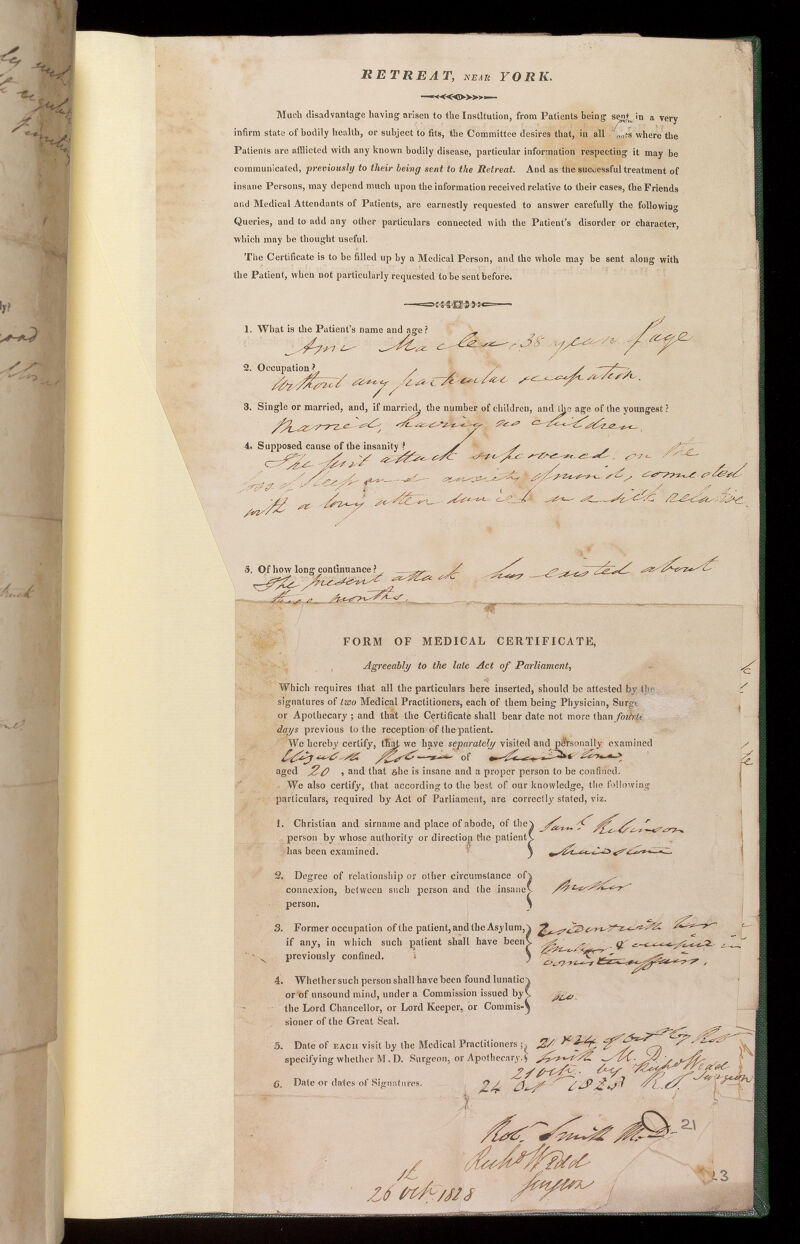 RETREAT, NEAR YORK.
Much disadvantage having arisen to the Institution, from Patients being sent in a very
infirm state of bodily health, or subject to fits, the Committee desires that, in all where the
Patients are afflicted with any known bodily disease, particular information respecting it may be
communicated, previously to their being sent to the Retreat. And as the successful treatment of
insane Persons, may depend much upon the information received relative to their cases, the Friends
and Medical Attendants of Patients, are earnestly requested to answer carefully the following
Queries, and to add any other particulars connected with the Patient's disorder or character,
which may be thought useful.
The Certificate is to be filled up by a Medical Person, and the whole may be sent along with
the Patient, when not particularly requested to be sent before.
1. What is the Patient's name and age?
Ann 38 years of age
2. Occupation?
Without any particular occupation.
3. Single or married, and, if married, the number of children, and the age of the youngest?
Married, having no children.
4. Supposed cause of the insanity?
The first attack supervened on the
loss of sleep and anxiety of mind, connected
with a long attendance on a sick relative.
5. Of how long continuance?
The present attack has existed about
three months.
FORM OF MEDICAL CERTIFICATE,
Agreeably to the late Act of Parliament,
Which requires that all the particulars here inserted, should be attested by the
signatures of two Medical Practitioners, each of them being Physician, Surge
or Apothecary; and that the Certificate shall bear date not more than fourte
days previous to the reception of the patient.
We hereby certify, that we have separately visited and personally examined
Elizabeth Robinson of Maidstone
aged 20, and that she is insane and a proper person to be confined.
We also certify, that according to the best of our knowledge, the following
particulars, required by Act of Parliament, are correctly stated, viz.
1. Christian and sirname and place of abode, of the
person by whose authority or direction the patient
has been examined.
Saml Robinson
Maidstone
2. Degree of relationship or other circumstance of
connexion, between such person and the insane
person.
Mother
3. Former occupation of the patient, and the Asylum,
if any, in which such patient shall have been
previously confined.
Resident with her
Mother & occupied in
domestic affairs.
4. Whether such person shall have been found lunatic
or of unsound mind, under a Commission issued by
the Lord Chancellor, or Lord Keeper, or Commis-
sioner of the Great Seal.
No.
5. Date of EACH visit by the Medical Practitioners;
specifying whether M.D. Surgeon, or Apothecary.
21 & 24 of Octr by Robt
Smith M.D.
21 Octr. by Richd Wedd
Surgeon
6. Date or dates of Signatures.
24 Oct 1828 R.S.
Robt. Smith M.D.
21
Richd Wedd
Surgeon
26 Octr 1828
23